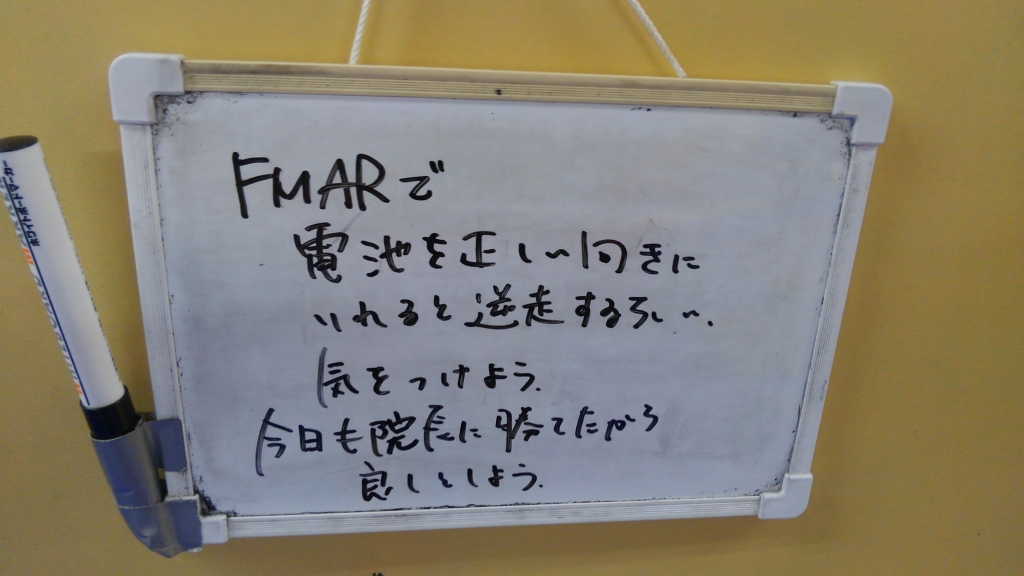 FMARで
電池を正しい向きに
いれると逆走するらしい、
気をつけよう.
今日も院長に勝てたから
良しとしよう.